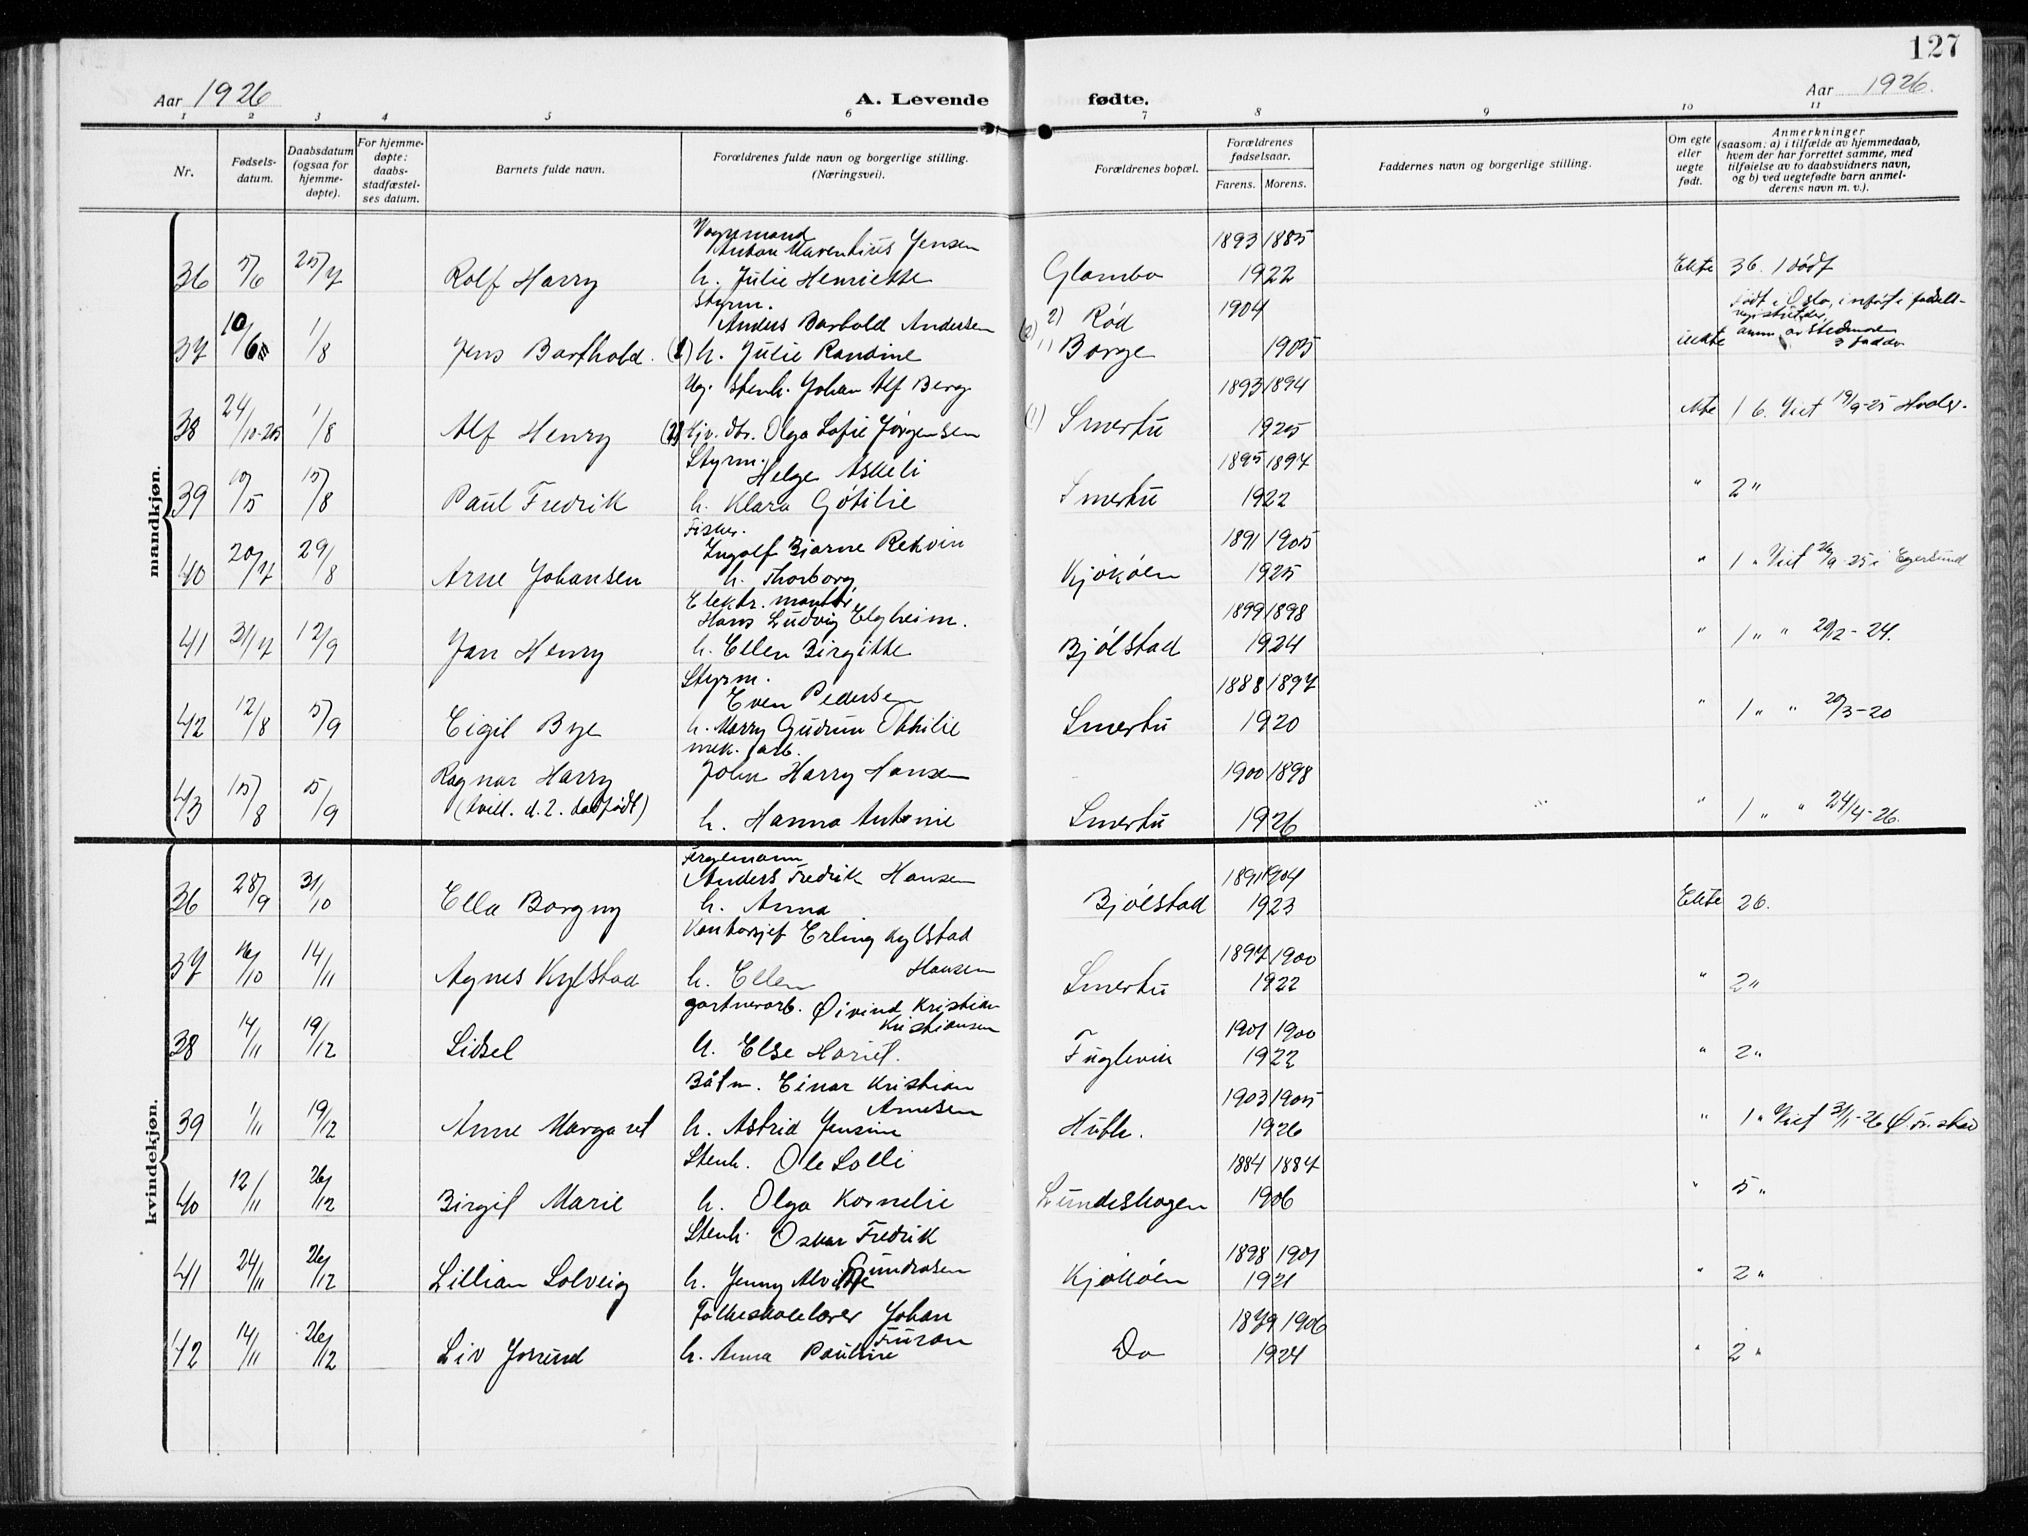 127
Aar 1926
A. Levende
fødte.
Aar 1926.
1 2 3 4 5 6 7 8 9 10 11
Nr.
Fødsels-
datum.
Daabsdatum
(ogsaa for
hjemme-
døpte).
For hjemme-
døpte:
daabs-
stadfæstel-
ses datum.
Barnets fulde navn.
Forældrenes fulde navn og borgerlige stilling.
(Næringsvei).
Forældrenes bopæl.
Forældrenes
fødselsaar.
Farens. Morens.
Faddernes navn og borgerlige stilling.
Om egte
eller
uegte
født.
Anmerkninger
(saasom: a) i tilfælde av hjemmedaab,
hvem der har forrettet samme, med
tilføielse av to daabsvidners navn,
og b) ved uegtefødte barn anmel-
derens navn m. v.).
mandkjøn.
Anton Marenthius Jensen 1893 1885
36 5/6 25/7 Rolf Harry h. Julie Henriette Glombo 1922 Ekte 36. 1 født
Styrm.
Anders Barhold Andersen 2) Rød 1904
37 10/6 1/8 Jens Barthold. h. Julie Randine 1) Borge 1905 uekte
Ug. Stenh. Johan Alf Berg 1893 1894
38 24/10-25 1/8 Alf Henry Olga Sofie Jørgensen (1) Smertu 1925 1 6. Viet 19/9-25
Styrm.
Helge Askeli 1895 1897
39 10/5 15/8 Paul Fredrik h. Klara Gotilie Smertu 1922 " 2 "
Fisker.
Ingolf Bjarne Rekvin 1891 1905
40 20/7 29/8 Arne Johansen h. Thorborg Kjøkøen 1925 " 1 " Viet 26/9-25 i Egersund
Elektr. montør
Hans Ludvig Elgheim. 1899 1898
41 31/7 12/9 Jan Henry h. Ellen Birgitte Bjølstad 1924 " 1 " " 20/2-24.
Styrm.
Even Pedersen 1888 1897
42 12/8 5/9 Eigil Bye h. Marry Gudrun Othilie Smertu 1920 " 1 " " 20/3-20
mek. arb.
Ragnar Harry John Harry Hansen 1900 1898
43 15/8 5/9 (tvill. d. 2. dødfødt) h. Hanna Antonie Smertu 1926 " 1 " " 24/4-26.
kvindekjøn.
Anders Fredrik Hansen 1891 1904
36 28/9 31/10 Ella Borgny h. Anna Bjølstad 1923 Ekte 26.
Kontorsjef Erling Kylstad
Hansen 1897 1900
37 16/10 14/11 Agnes Kylstad h. Ellen Smertu 1922 " 2 "
gartnerarb. Øivind Kristian
Kristiansen 1901 1900
38 14/11 19/12 Lidsel h. Else Hariet. Fuglevik 1922 " 2 "
Båtm. Einar Kristian
Arnesen 1903 1905
39 1/11 19/12 Anne Margaret h. Astrid Jensine Huth. 1926 " 1 " Viet 31/1-26
Stenh. Ole Lolli 1884 1887
40 12/11 26/12 Birgit Marie h. Olga Kornelie Lundeskogen 1906 " 5 "
Stenh. Oskar Fredrik
Gundrosen 1898 1901
41 24/11 26/12 Lillian Solveig h. Jenny Alvilde Kjøkøen 1921 " 2 "
Folkeskolelærer Johan
Furan 1879 1906
42 14/11 26/12 Liv Jorund h. Anna Pauline Do 1924 " 2 "